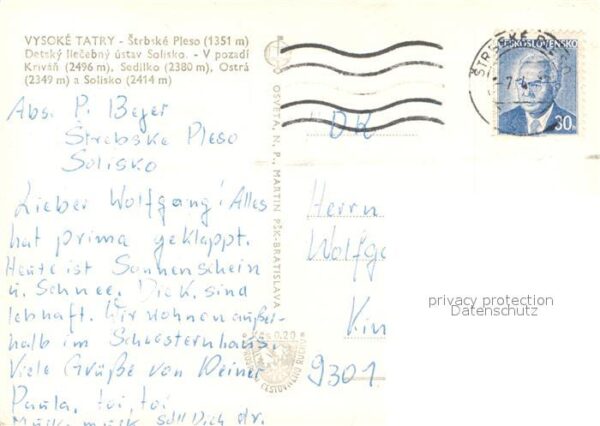 VYSOKÉ TATRY - Štrbské Pleso (1351 m)
Detský liečebný ústav Solisko. - V pozadí
Kriváň (2496 m), Sedilko (2380 m), Ostrá
(2349 m) a Solisko (2414 m)
Abs. P. Beyer
Štrbske Pleso
Solisko
Lieber Wolfgang! Alles
hat prima geklappt.
Heute ist Sonnenschein
u. Schnee. Die K. sind
lebhaft. Wir wohnen außer-
halb im Schwesternhaus.
Viele Grüße von Deiner
Paula, toi, toi
soll Dich dr.
OSVETA, N. P., MARTIN PŠK-BRATISLAVA
Kčs 0.20
CESTOVNÉHO RUCHU
ŠTRBSKÉ P
ČESKOSLOVENSKO
30h
Herrn
Wolfg
9301
privacy protection
Datenschutz